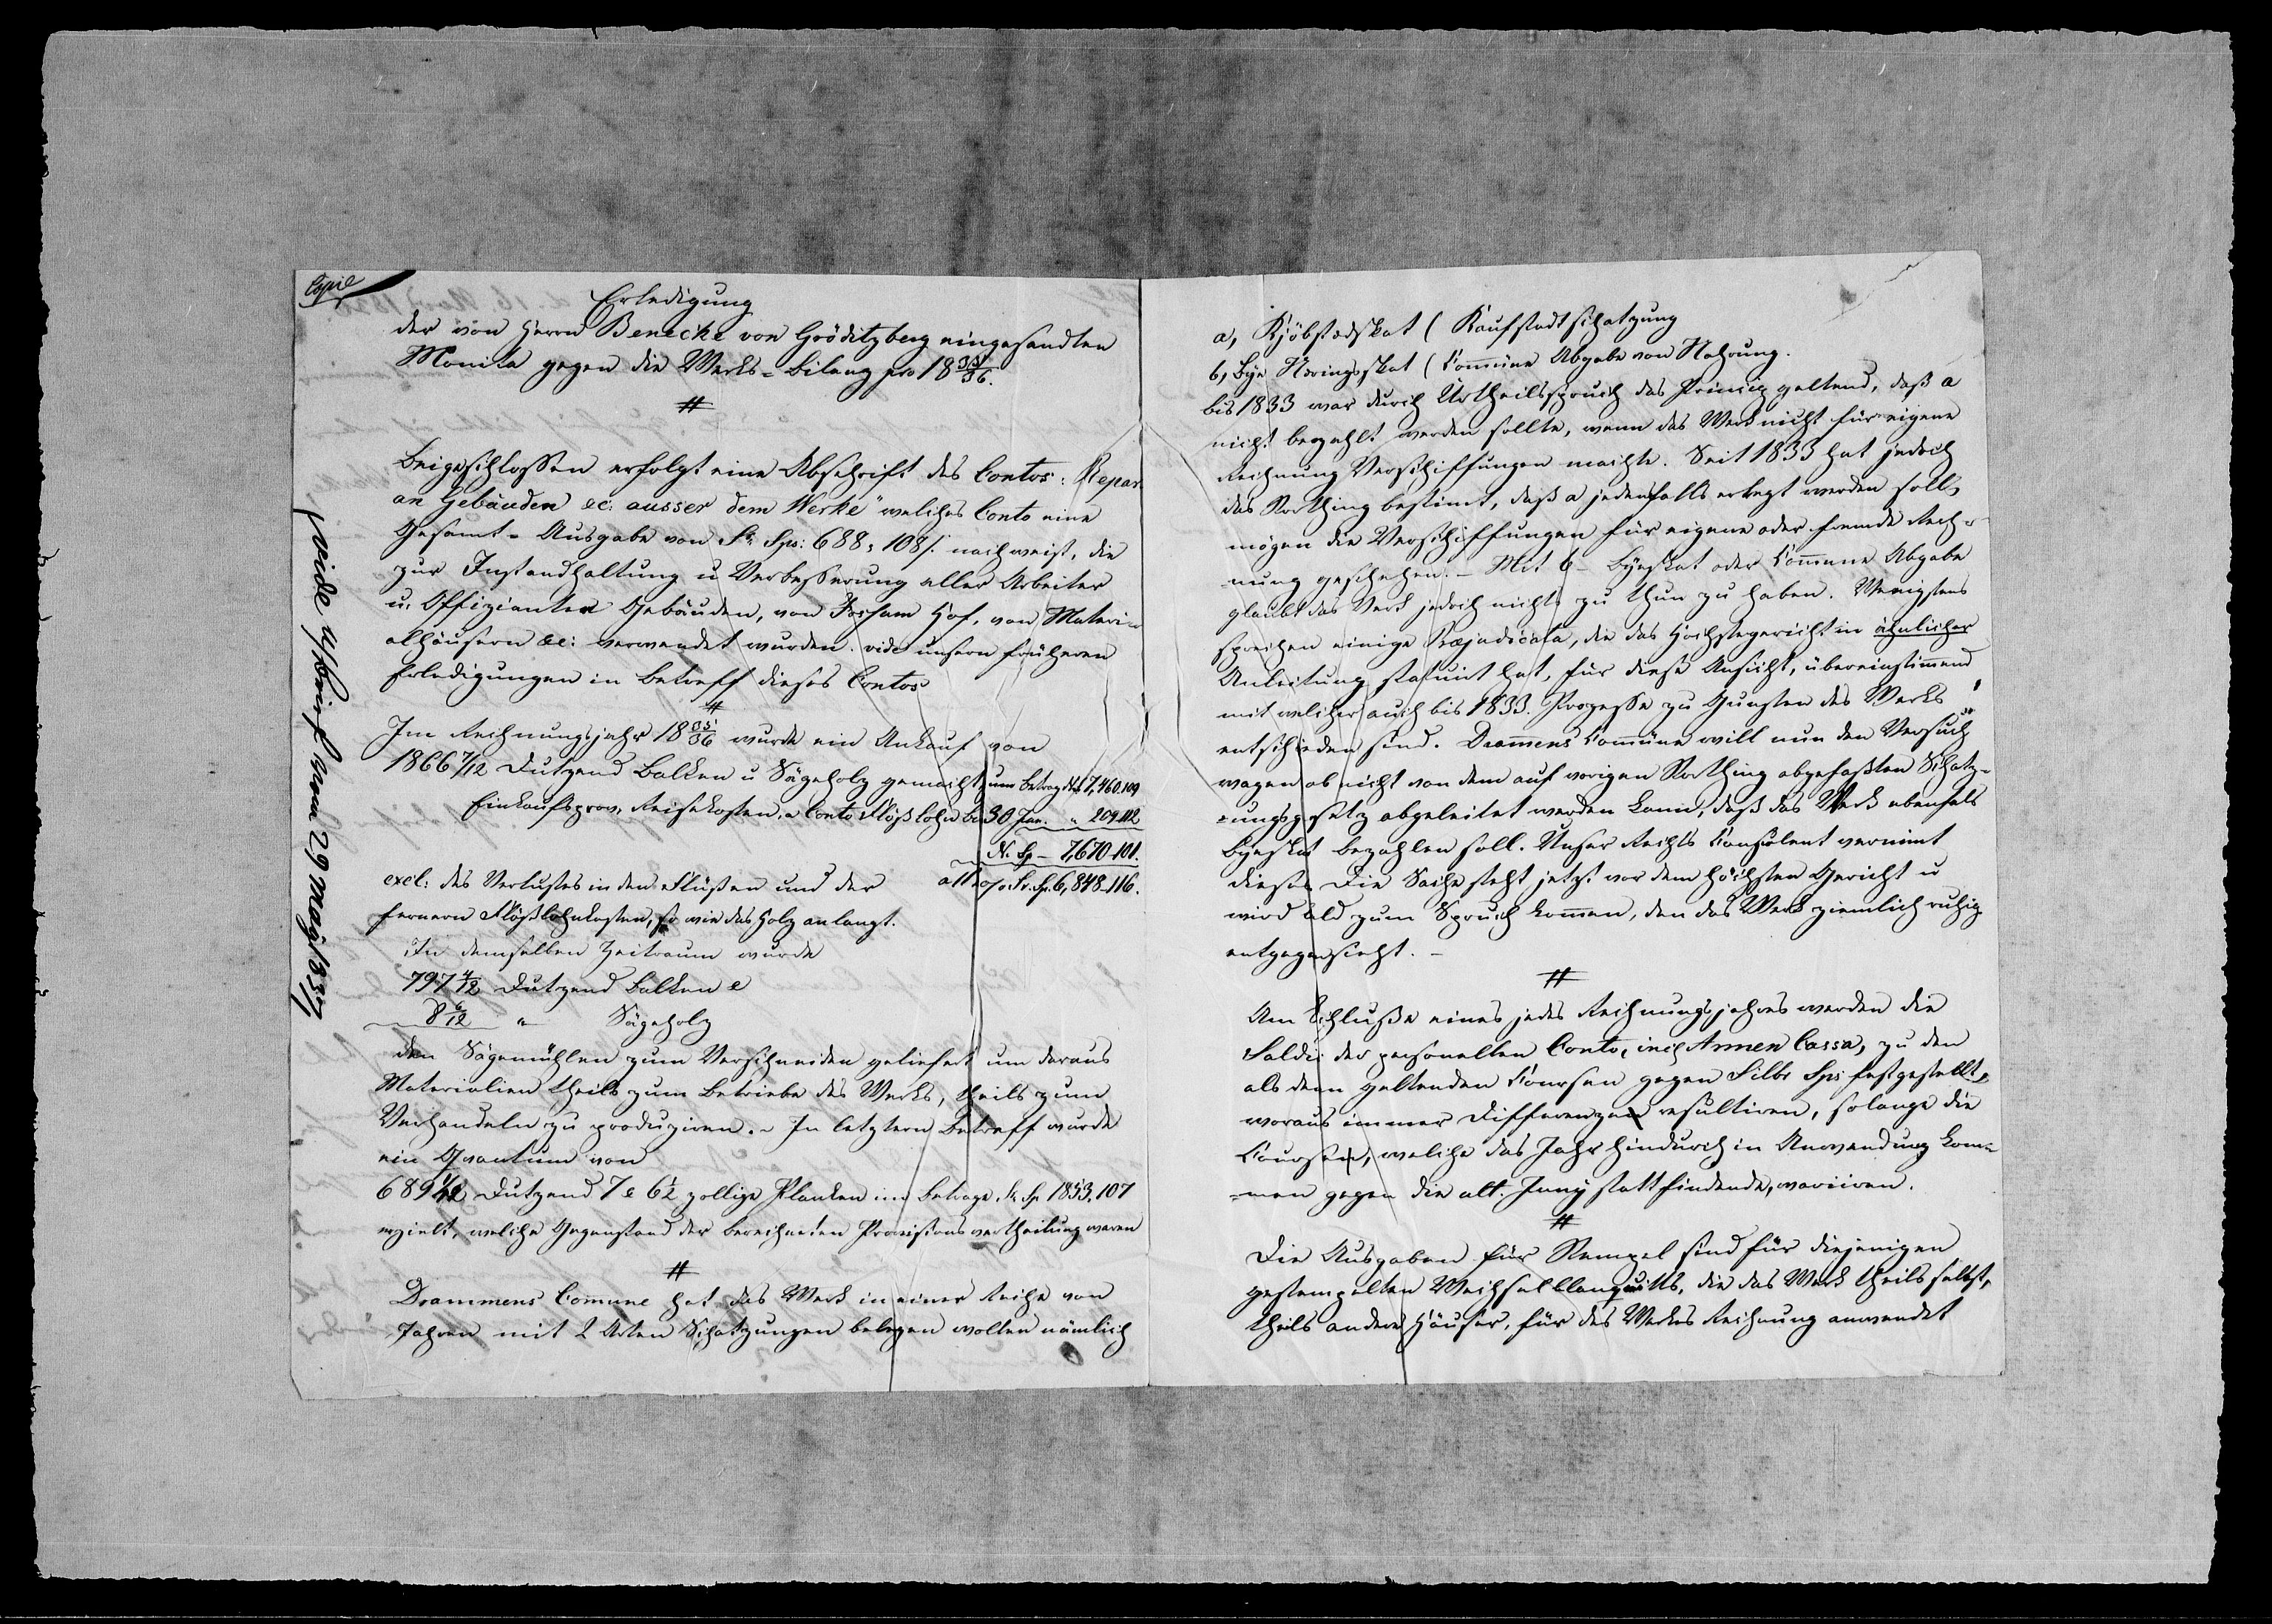 Copie
Erledigung
der von Herrn Benecke von Gröditzberg eingesandten
Monita gegen die Werks-Bilanz pro 18 35/36.
#
Beigeschlossen erfolgt eine Abschrift des Contos: Repar
an Gebäuden &c: ausser dem Werke" welches Conto eine
Gesamt-Ausgabe von Sr. Sps: 688, 108/. nachweist, die
zur Instandhaltung u Verbesserung aller Arbeiter
u. Offizianten Gebäuden, von Fossum Hof, von Materi-
alhäusern &c: verwendet wurden. vide unsern früheren
Erledigungen in Betreff dieses Contos
#
Im Rechnungsjahr 18 35/36 wurde ein Ankauf von
1866 7/12 Dutzend Balken u Sägeholz gemacht, zum Betrag 7,460.109
Einkaufsprov, Reisekosten, a Conto Flößlohn bis 30 Jun. " 209.112
N. Sp - 7,670-101.
excl: des Verlustes in den Flüßen und der Sr. Sp. 6,848.116.
fernern Flößlohnkosten, so wie das Holz anlangt.
In demselben Zeitraum wurde
797 4/12 Dutzend Balken &
8 6/12 " Sägeholz
den Sägemühlen zum Verschneiden geliefert um daraus
Materialien theils zum Betriebe des Werks, theils zum
Verhandeln zu produziren. - In letztern Betreff wurde
ein Quantum von
689 Dutzend 7 & 6½ zollige Planken im Betrage Sr. Sp 1853,107
erzielt, welche Gegenstand der berechneten Provisionsvertheilung waren
#
Drammens Comune hat das Werk in einer Reihe von
Jahren mit 2 Arten Schatzungen belegen wollen nämlich
(vide u/ brief vom 29 May 1837)
a, Kjöbstedskat ( Kaufstadtschatzung
b, Bye Næringsskat ( Comüne Abgabe von Nahrung.
bis 1833 war durch Urtheilsspruch das Princip geltend, daß a
nicht bezahlt werden sollte, wenn das Werk nicht für eigene
Rechnung Verschiffungen machte. Seit 1833 hat jedoch
das Storthing bestimt, daß a jedenfalls erlegt werden soll,
mögen die Verschiffungen für eigene oder fremde Rech-
-nung geschehen. - Mit b - Byeskat oder Comune Abgabe
glaubt das Werk jedoch nichts zu thun zu haben. Wenigstens
sprechen einige Præjudicata, die das Höchstegericht in ähnlicher
Anleitung statuirt hat, für diese Ansicht, übereinstimend
mit welcher auch bis 1833. Prozesse zu Gunsten des Werks
entschieden sind. Dramens Comüne will nun den Versuch
wagen ob nicht von dem auf vorigen Storthing abgefaßten Schatz-
-ungsgesetz abgeleitet werden kann, daß das Werk ebenfals
Byeskat bezahlen soll. Unser Rechts Consulent verneint
dieses. Die Sache steht jetzt vor dem höchsten Gericht u
wird bald zum Spruch komen, den das Werk ziemlich ruhig
entgegensieht. -
#
Am Schluße eines jedes Rechnungsjahres werden die
Saldi der personellen Conto, incl Armen Cassa, zu den
als dann geltenden Coursen gegen Silbr Sps festgestellt,
woraus immer Differenzen resultiren, solange die
Coursen, welche das Jahr hindurch in Anwendung kom-
-men gegen die ult. Juny stattfindende, variiren.
#
Die Ausgaben für Stempel sind für diejenigen
gestempelten Wechselblanquitts, die das Werk theils selbst,
theils andere Häuser, für des Werkes Rechnung anwendet